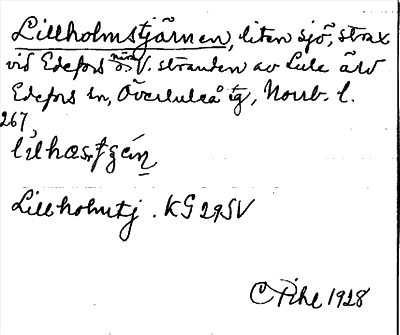 Lillholmstjärnen, liten sjö, strax
vid Edefors nära V. stranden av Lule älv
Edefors sn, Överluleå tg, Norrb. l.
267,
Lillholmstj. KG 29SV
C Pihl 1928